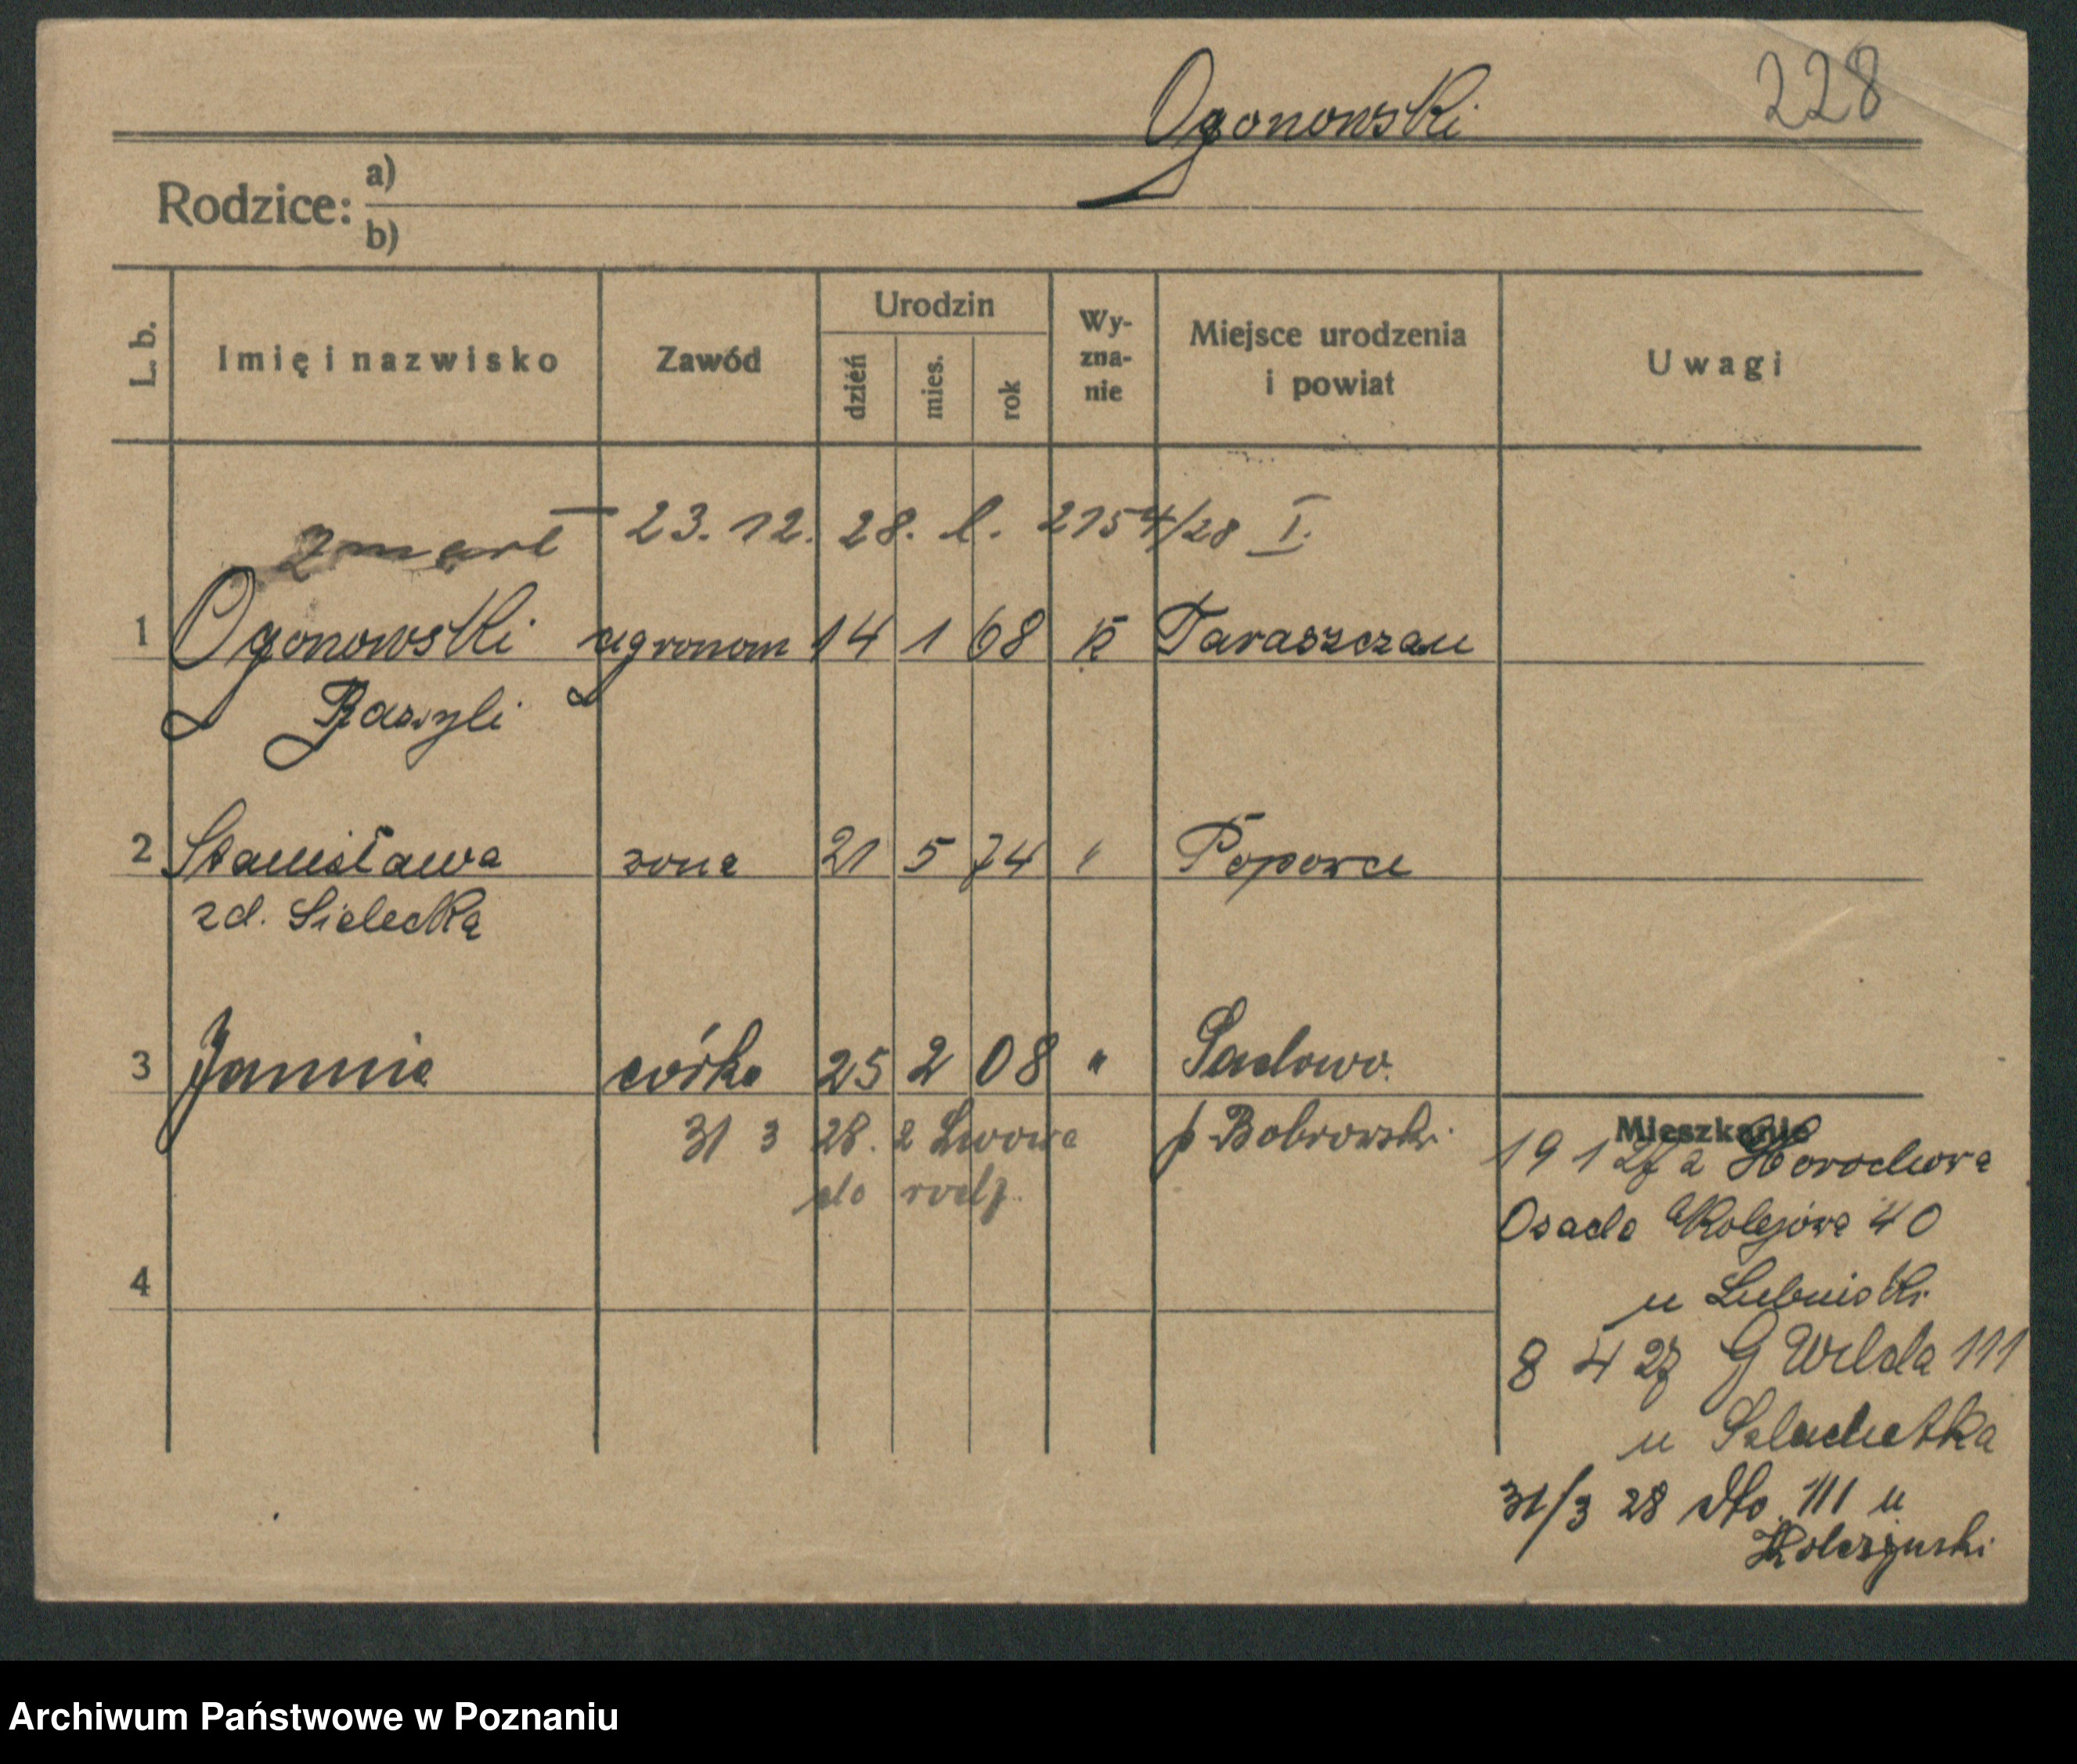 Ogonowski 228
Rodzice: a)
b)
L. b. Imię i nazwisko Zawód Urodzin dzień mies. rok Wy-zna-nie Miejsce urodzenia i powiat Uwagi
zmarł 23. 12. 28. l. 2154/28 I.
1 Ogonowski agronom 14 1 68 k Taraszczau
Bazyli
2 Stanisława zona 21 5 74 " Popowce
zd. Sielecką
3 Jannnia córka 25 2 08 " Sadowo.
31 3 28. z Lwowa p. Bobrowski.
do rodz.
Mieszkanie
19 1 27 z Horochowa
Osada Kolejowa 40
u
4
8 4 27 G Wilda 111
u Szlachetka
31/3 28 dto. 111 u
Kolczynski
Archiwum Państwowe w Poznaniu